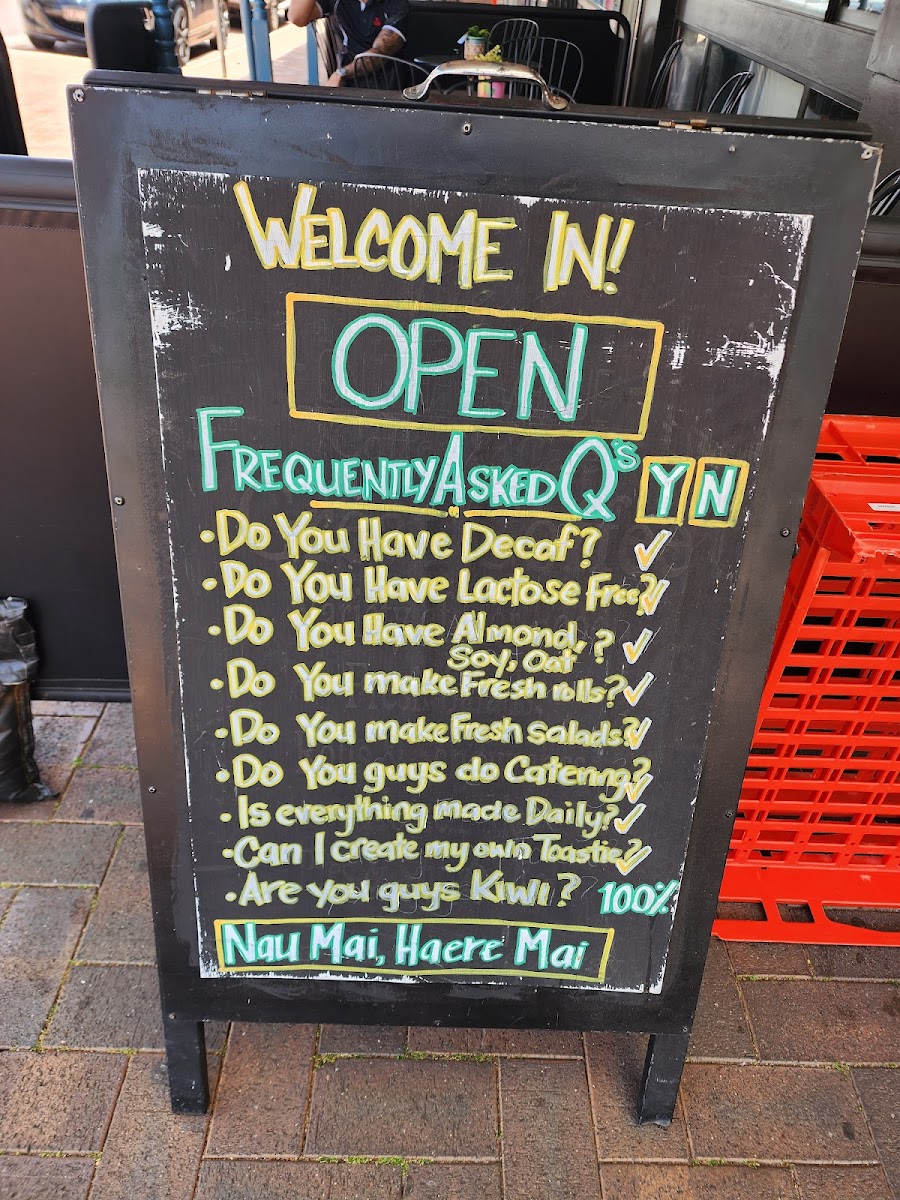 WELCOME IN!
OPEN
FREQUENTLY ASKED Q's Y N
• Do You Have Decaf? ✓
• Do You Have Lactose Free? ✓
• Do You Have Almond, ? ✓
Soy, Oat
• Do You make Fresh rolls? ✓
• Do You make Fresh salads? ✓
• Do You guys do Catering? ✓
• Is everything made Daily? ✓
• Can I create my own Toastie? ✓
• Are you guys KIWI? 100%
Nau Mai, Haere Mai